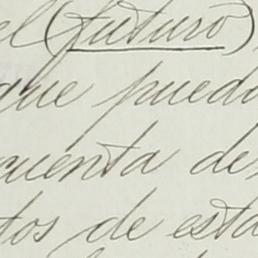 el (futuro)
que puedo
cuenta de
tos de esta